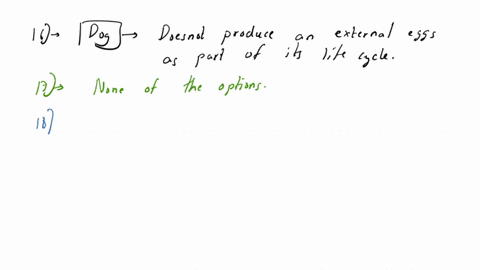 16)→ Dog → Doesnot produce an external eggs
as part of its life cycle.
17)→ None of the options.
18)